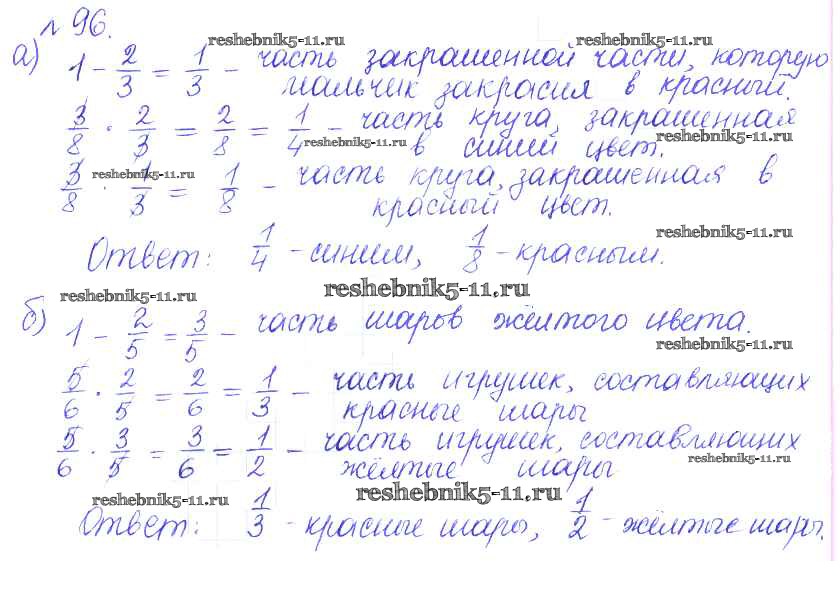 № 96.
а) 1 - 2/3 = 1/3 - часть закрашенной части, которую
мальчик закрасил в красный.
3/8 · 2/3 = 2/8 = 1/4 - часть круга, закрашенная
в синий цвет.
3/8 · 1/3 = 1/8 - часть круга, закрашенная в
красный цвет.
Ответ: 1/4 - синим, 1/8 - красным.
б) 1 - 2/5 = 3/5 - часть шаров жёлтого цвета.
5/6 · 2/5 = 2/6 = 1/3 - часть игрушек, составляющих
красные шары
5/6 · 3/5 = 3/6 = 1/2 - часть игрушек, составляющих
жёлтые шары
Ответ: 1/3 - красные шары, 1/2 - жёлтые шары.
reshebnik5-11.ru
reshebnik5-11.ru
reshebnik5-11.ru
reshebnik5-11.ru
reshebnik5-11.ru
reshebnik5-11.ru
reshebnik5-11.ru
reshebnik5-11.ru
reshebnik5-11.ru
reshebnik5-11.ru
reshebnik5-11.ru
reshebnik5-11.ru